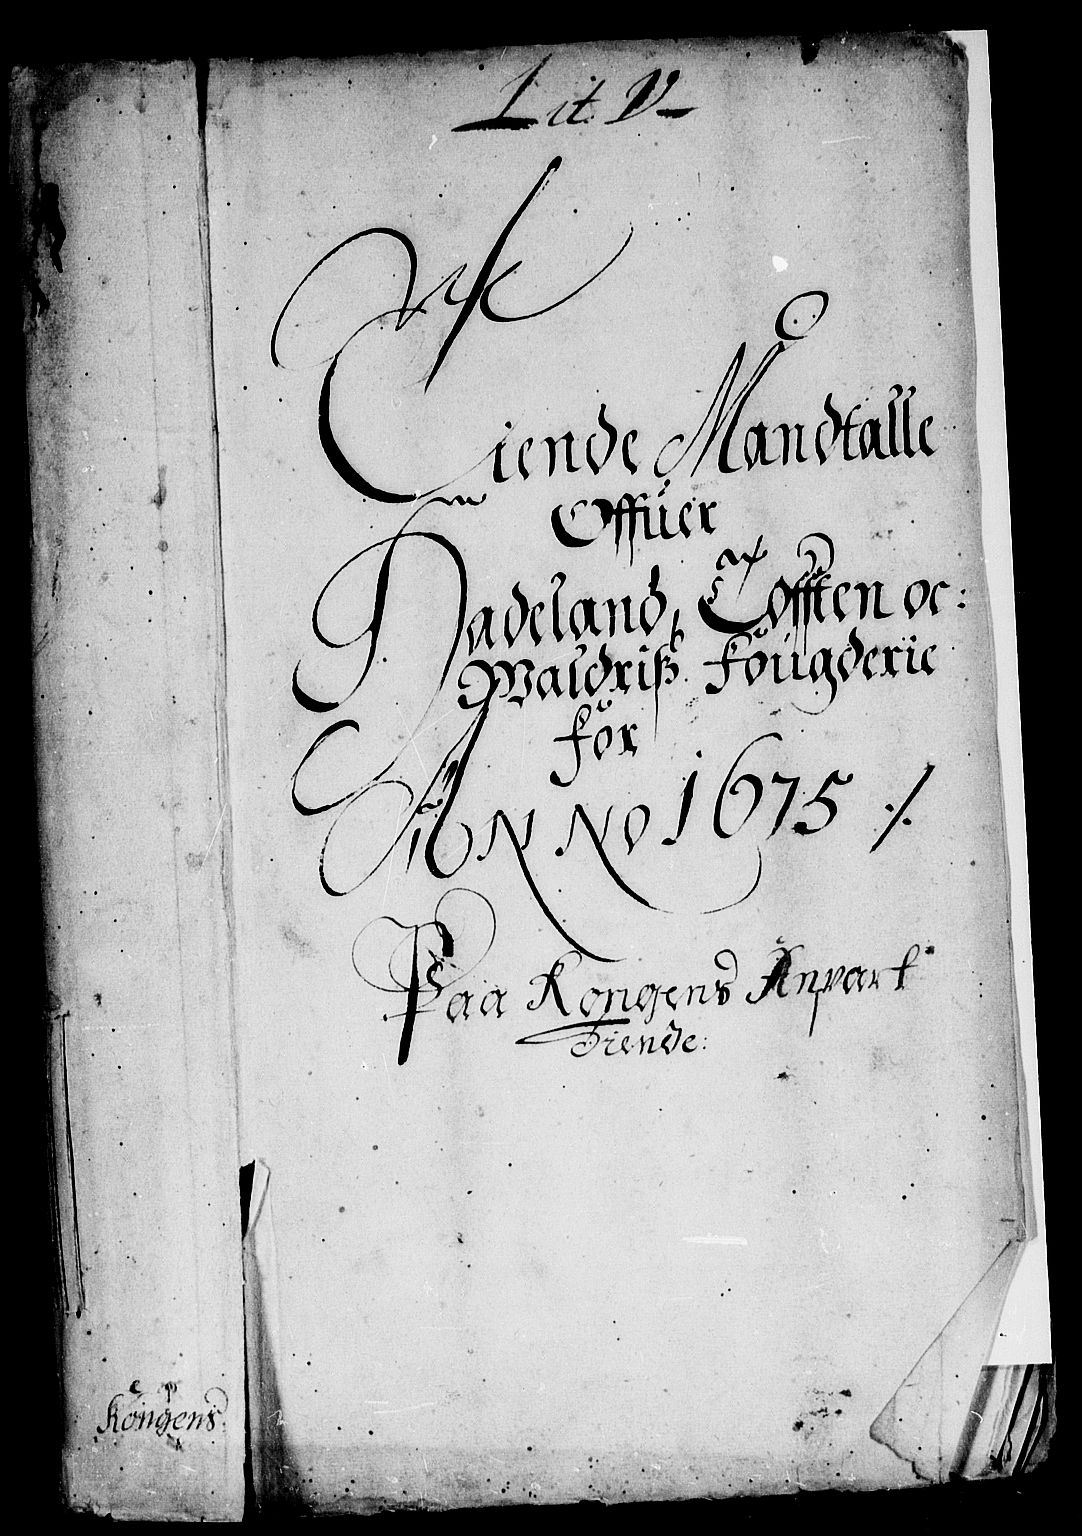 Lit. V
Tiende Mandtalle
Offüer
Hadeland, Tofften oc:
Waldriß Föugderie
för
ANNO 1675 ./.
Paa Kongens Anpart
Tiende:
Kongens